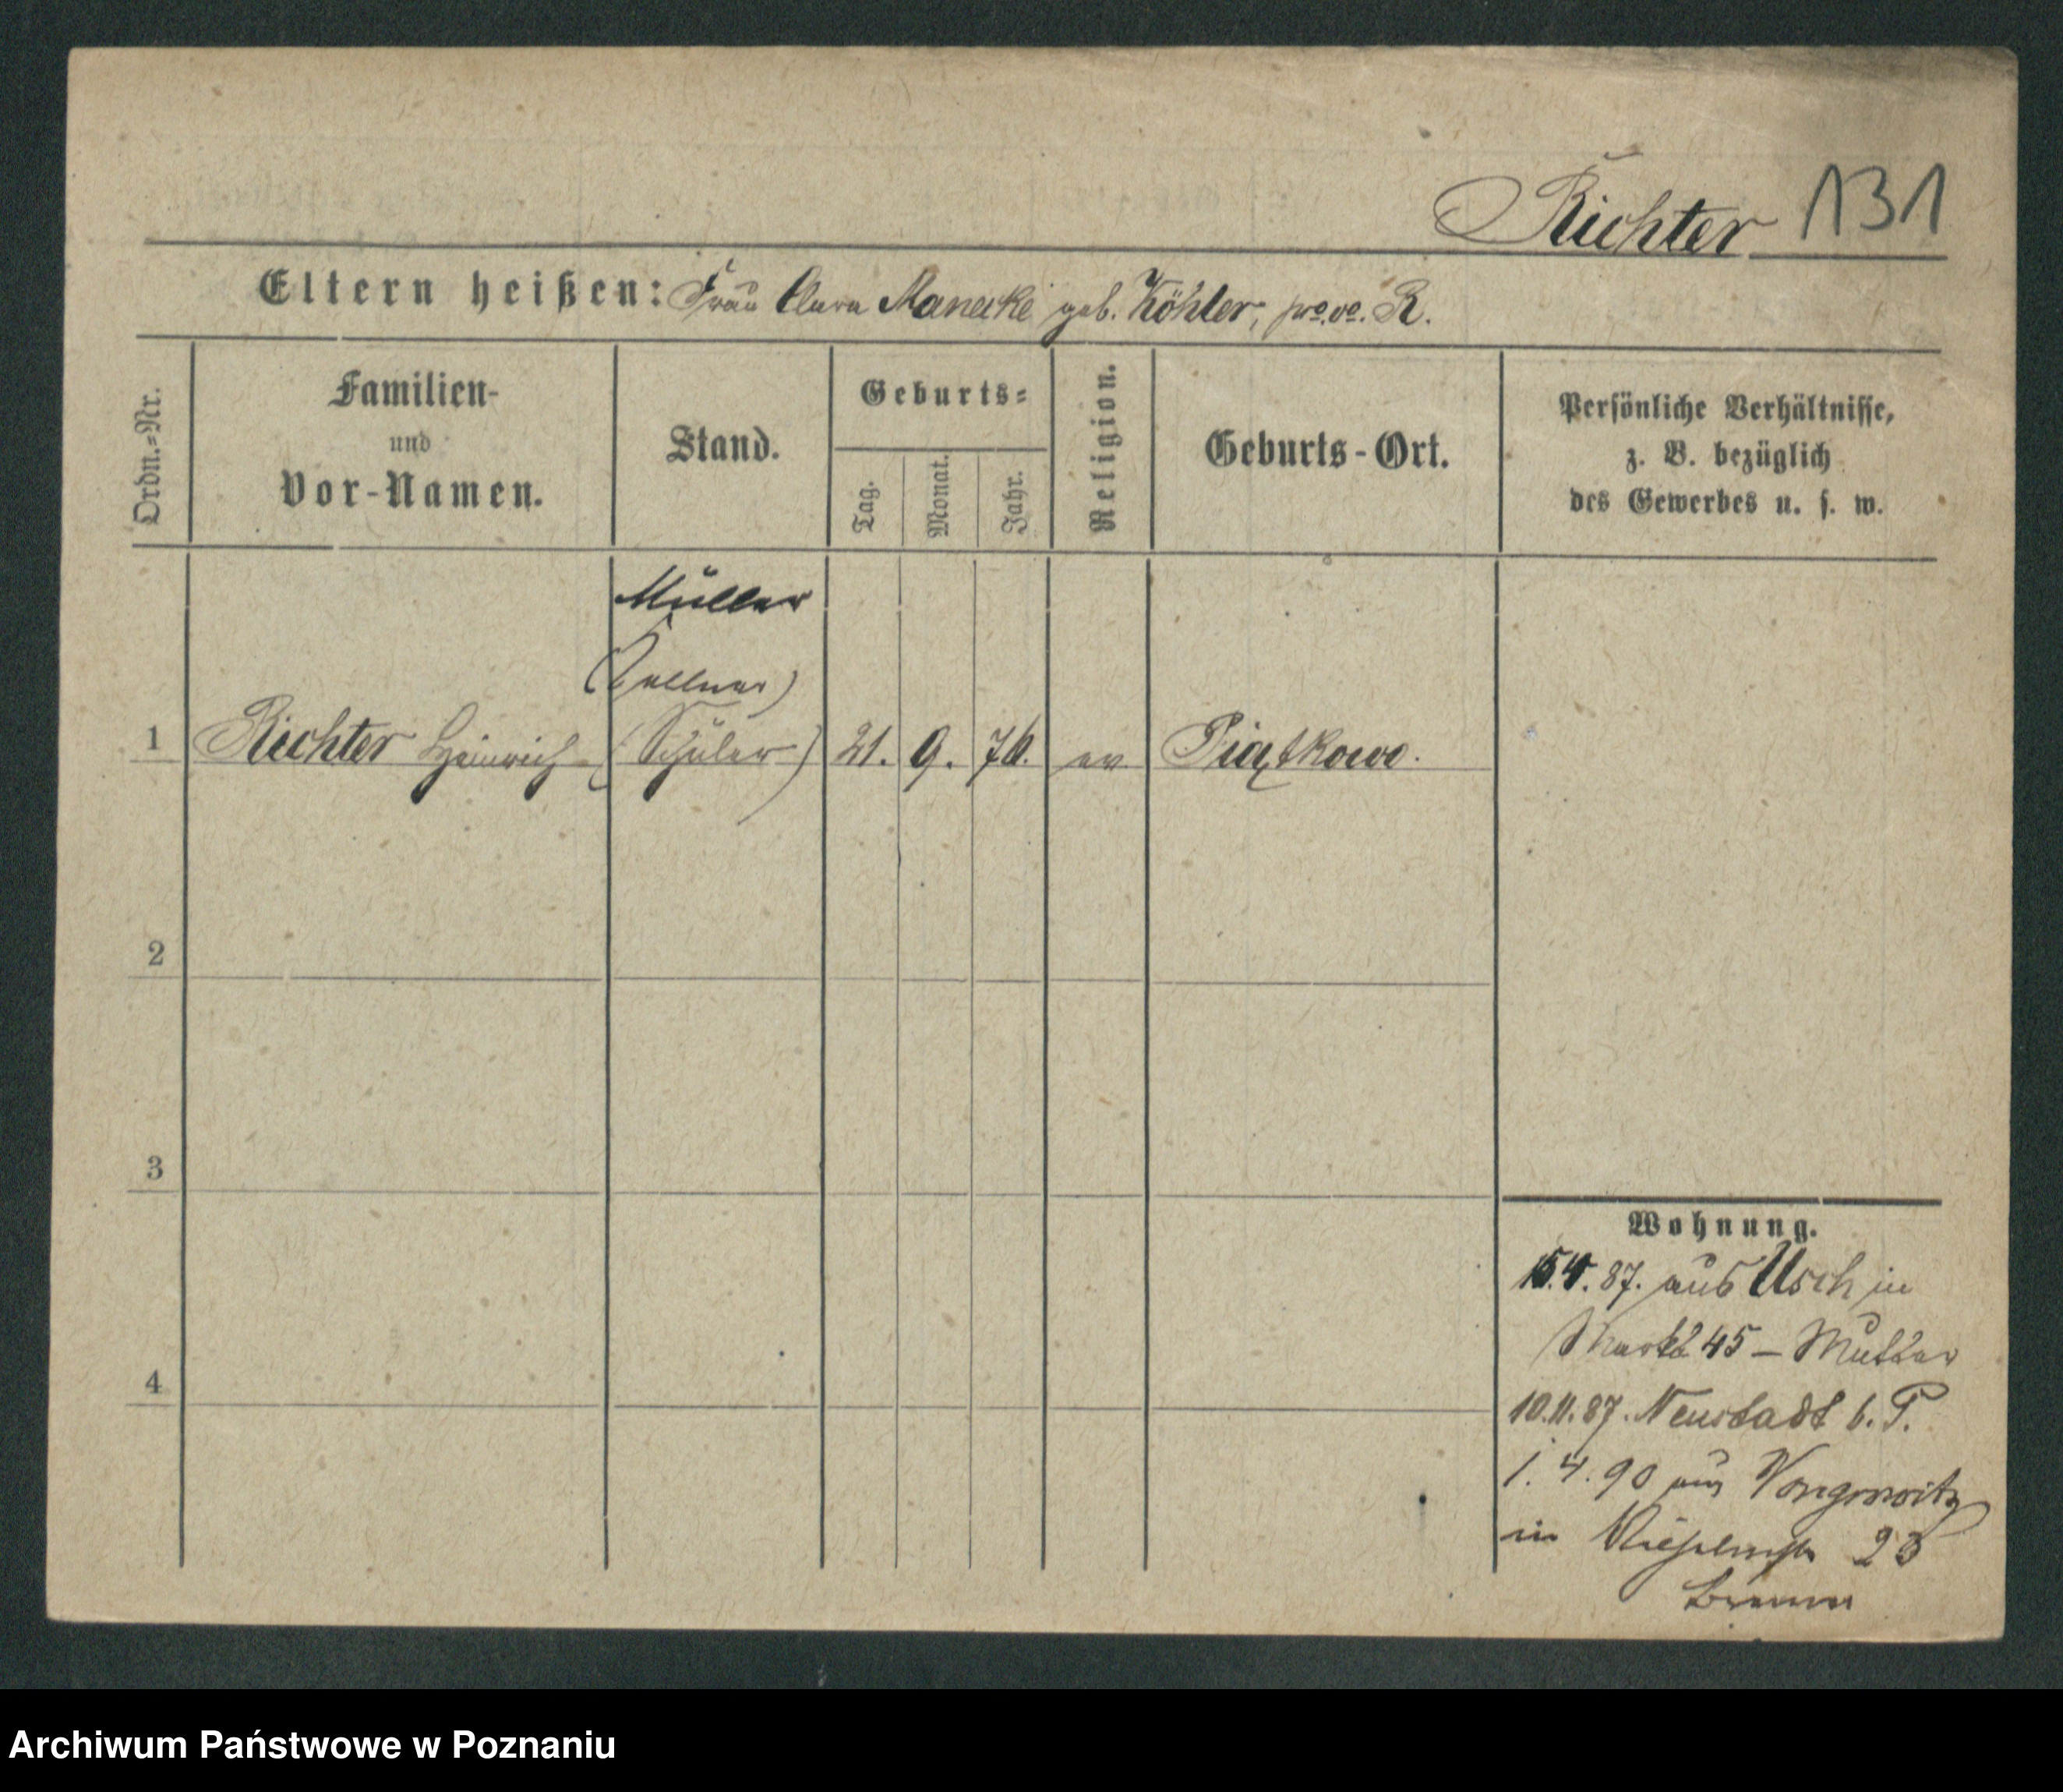 Richter 131
Eltern heißen: Frau Clara Manecke geb. Köhler, pro. vo. R.
Ordn.-Nr.
Familien-
und
Vor-Namen.
Stand.
Geburts-
Tag.
Monat.
Jahr.
Religion.
Geburts-Ort.
Persönliche Verhältnisse,
z. B. bezüglich
des Gewerbes u. s. w.
Müller
(Kellner)
1 Richter Heinrich (Schüler) 21. 9. 76. ev. Piątkowo.
2
3
4
Wohnung.
15.4.87. aus Usch in
Markt 45 – Mutter
10.11.87. Neustadt b. P.
1.4.90 aus Wongrowitz
in 23
Archiwum Państwowe w Poznaniu